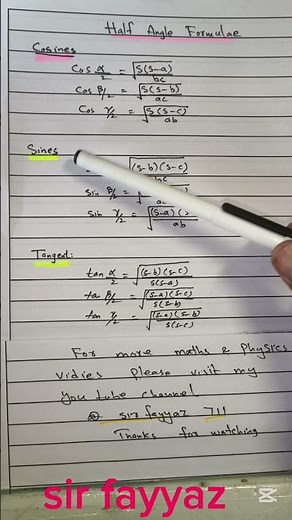 Half Angle Formulae
Cosines
Cos α/2 = √(S(S-a)/bc)
Cos β/2 = √(S(S-b)/ac)
Cos γ/2 = √(S(S-c)/ab)
Sines
√((S-b)(S-c)/bc)
Sin β/2 = √
Sin γ/2 = √((S-a)( /ab)
Tangent:
tan α/2 = √((S-b)(S-c)/S(S-a))
tan β/2 = √((S-a)(S-c)/S(S-b))
tan γ/2 = √((S-a)(S-b)/S(S-c))
For more maths & Physics
vidies please visit my
you tube channel
@ sir fayyaz 711
Thanks for watching
sir fayyaz
CapCut